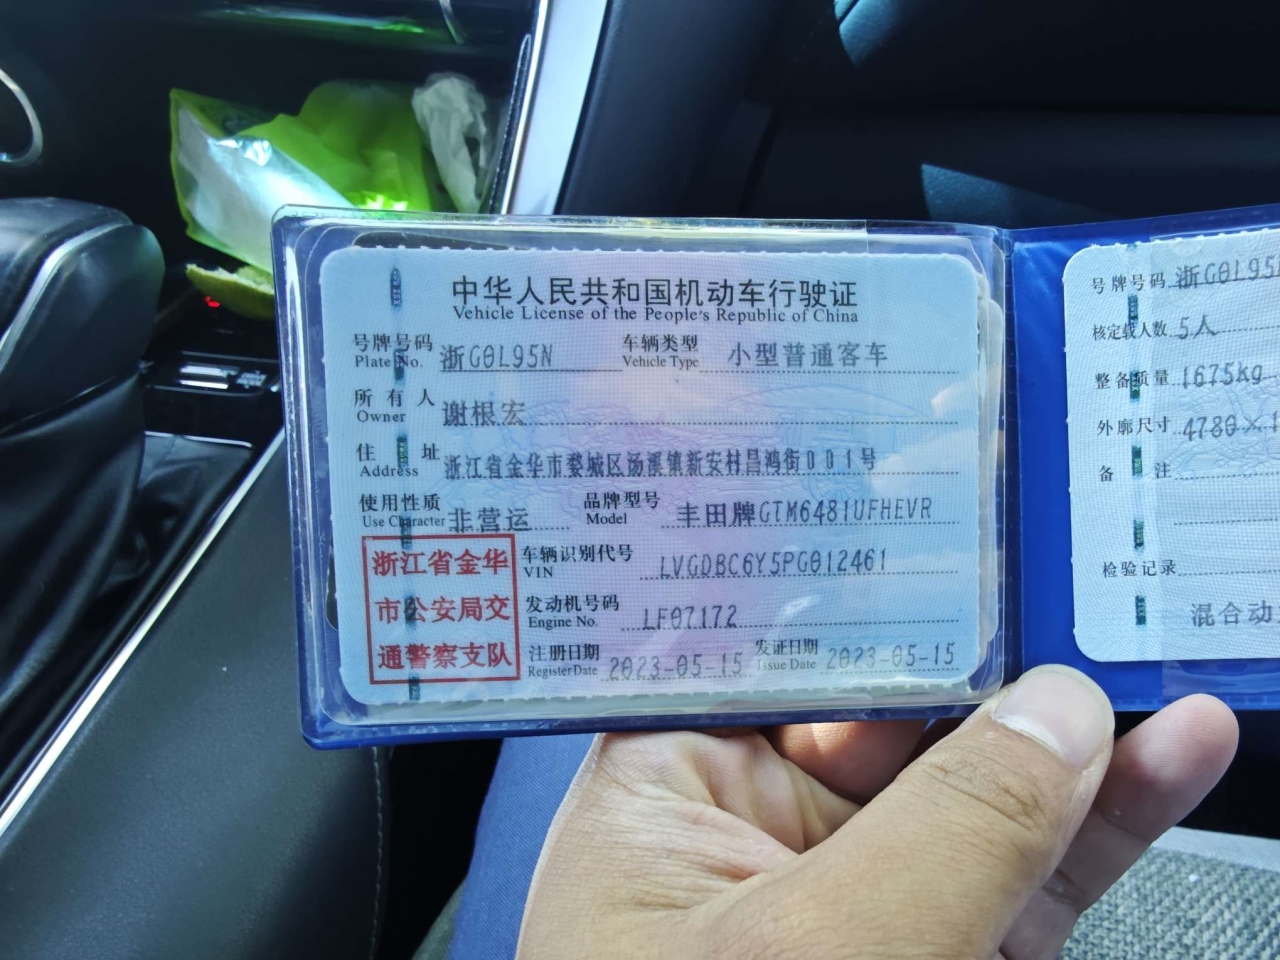 中华人民共和国机动车行驶证
Vehicle License of the People's Republic of China
号牌号码 浙G0L95N 车辆类型 小型普通客车
Plate No. Vehicle Type
所有人 谢根宏
Owner
住址 浙江省金华市婺城区汤溪镇新安村昌鸿街001号
Address
使用性质 非营运 品牌型号 丰田牌GTM6481UFHEVR
Use Character Model
浙江省金华
市公安局交
通警察支队
车辆识别代号 LVGDBC6Y5PG012461
VIN
发动机号码 LF07172
Engine No.
注册日期 2023-05-15 发证日期 2023-05-15
Register Date Issue Date
号牌号码 浙G0L95
核定载人数 5人
整备质量 1675kg
外廓尺寸 4780×
备注
检验记录
混合动